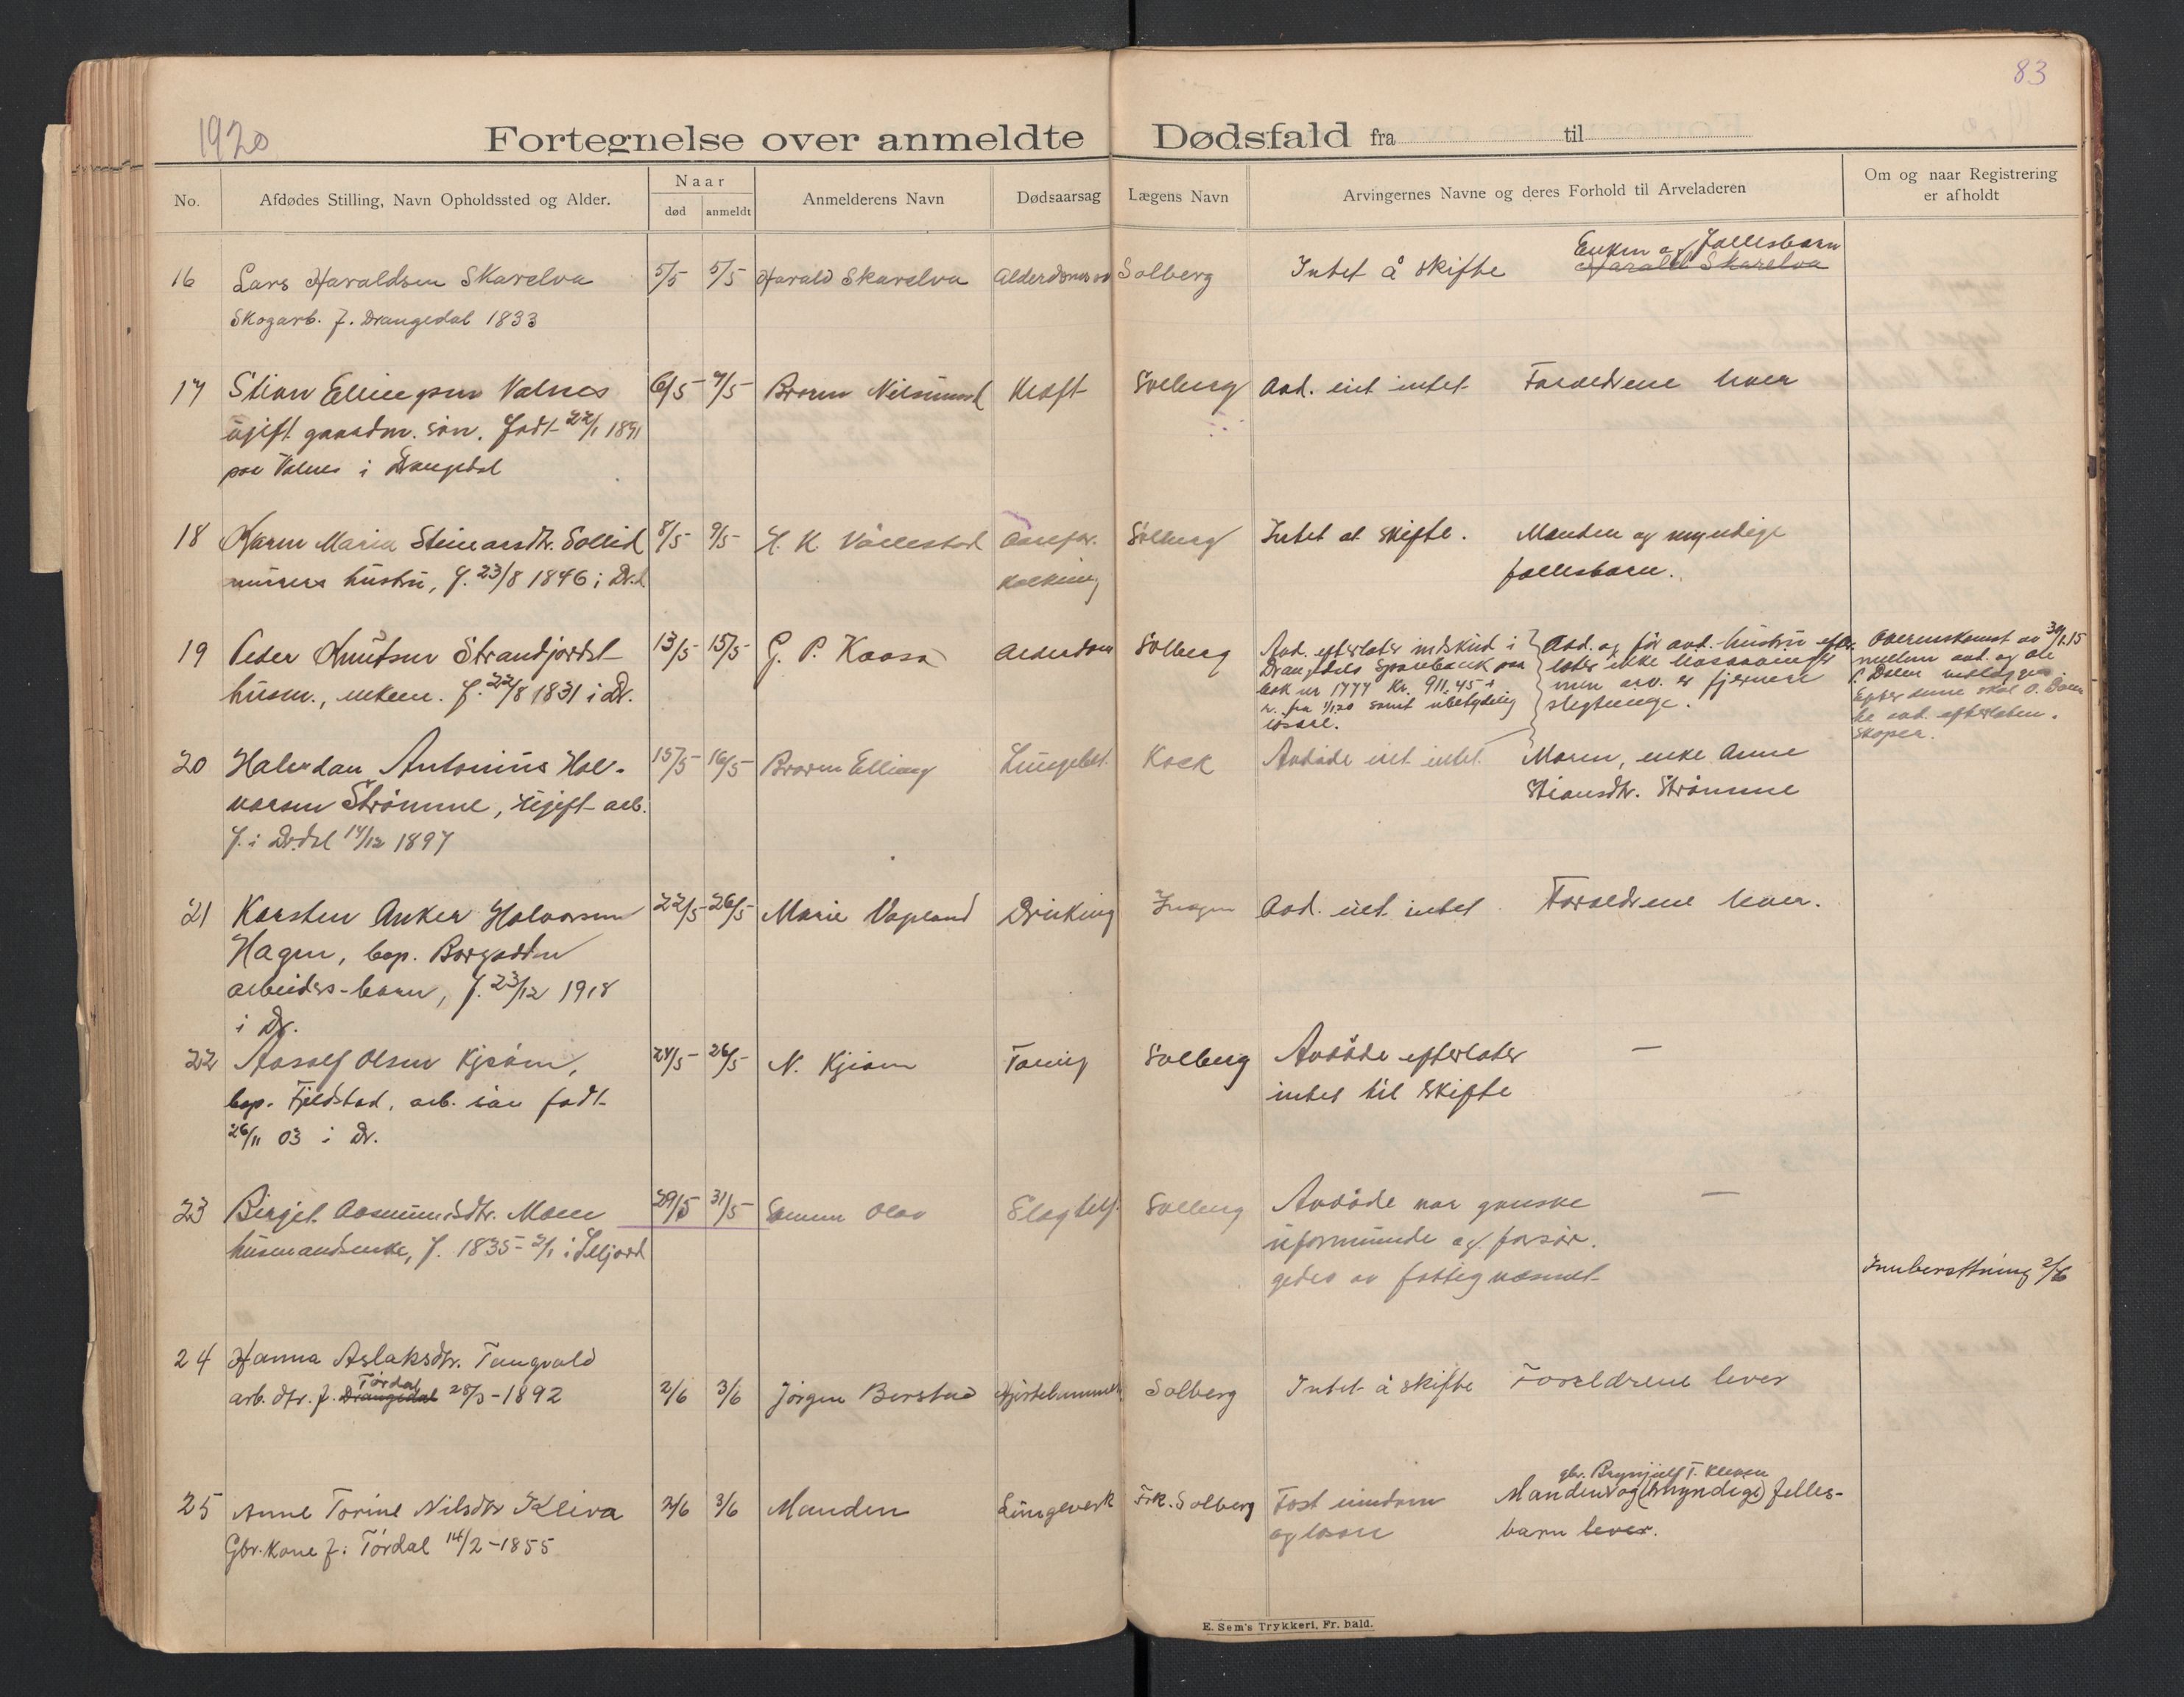 83
1920
Fortegnelse over anmeldte Dødsfald fra til
No.
Afdødes Stilling, Navn Opholdssted og Alder.
Naar
død
anmeldt
Anmelderens Navn
Dødsaarsag
Lægens Navn
Arvingernes Navne og deres Forhold til Arveladeren
Om og naar Registrering
er afholdt
16 Lars Haraldsen Skarelva 5/5 5/5 Harald Skarelva Solberg Intet å skifte Enken og fællesbarn
Harald Skarelva
Skogarb. f. Drangedal 1833
17 Stian Ellingsen Valnes 6/5 7/5 Broren Kræft Solberg Avd. eiet intet Forældrene lever
ugift gaardm. søn. Født 22/1 1891
paa Valnes i Drangedal
18 Karen Maria Steinarsdtr. Sollid 8/5 9/5 H. K. Vællestad Aarefor. Solberg Intet at skifte. Manden og myndige
murers hustru, f. 23/8 1846 i Dr.d. kalkning fællesbarn.
19 Peder Knutsen Strandjordet 13/5 15/5 G. P. Kaasa Alderdom Solberg
husm., enkem. f. 22/8 1831 i Dr.
Avd. efterlater indskud i
Drangedals Sparebank paa
bok nr 1777 Kr. 911,45 +
r. fra 1/1 20 samt ubetydelig
løsøre.
Avd. og før avd. hustru efter-
later ikke livsarvinger
men arv. er fjernere
slegtninge.
Overenskomst av 30/1.15
mellem avd. og Ole
P. Dalen
Efter denne skal O. Dalen
ha avd. efterladen-
skaper.
20 Halvdan Antonius Hal- 15/5 16/5 Broren Elling Lungebet. Kock Avdøde eiet intet Moren, enke Anne
vorsen Strømme, ugift arb. Stiansdtr. Strømme
f. i Dr.dal 14/12 1897
21 Karsten Anker Halvorsen 22/5 26/5 Marie Vapland Drukning Ingen Avd. eiet intet Forældrene lever.
Hagen, bop. Borgodden
arbeiders-barn, f. 23/12 1918
i Dr.
22 Aasolf Olsen Kjøsm, 24/5 26/5 N. Kjøsen Tæring Solberg Avdøde efterlater —
bop. Fjeldstad, arb. søn født intet til skifte
26/11 03 i Dr.
23 Birgit Aasmundsdtr. Moen 29/5 31/5 Sønnen Olav Slagtilf. Solberg Avdøde var ganske —
husmandsenke, f. 1835 2/1 i Seljord uformuende og forsør-
gedes av fattigvæsnet
Innberettning 2/6
24 Hanna Aslaksdtr. Tangvald
arb. dtr. f. Drangedal Tørdal 28/3-1892 2/6 3/6 Jørgen Berstad Solberg Intet å skifte Foreldrene lever
25 Anne Torine Nilsdtr Kleiva 2/6 3/6 Manden Lungeverk Frk. Solberg Fast eiendom Manden og (myndige) felles-
gbr. Brynjulf T. Kleiva
Gbr. kone f. i Tørdal 14/2-1855 og løsøre barn lever.
E. Sem's Trykkeri, Fr. hald.